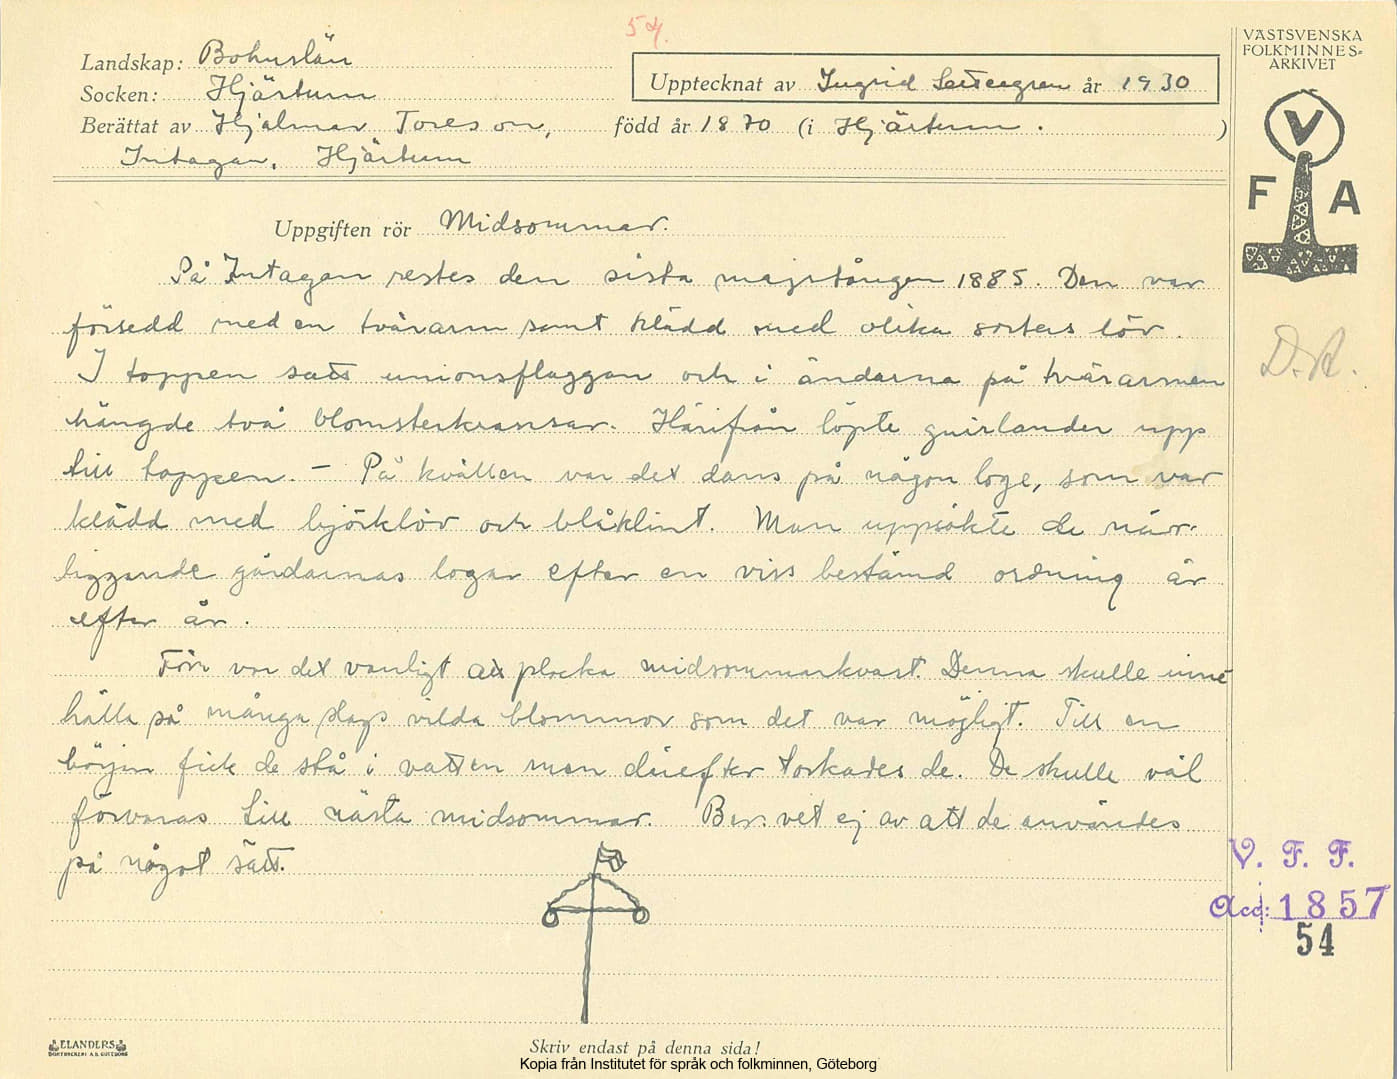 54.
VÄSTSVENSKA
FOLKMINNES=
ARKIVET
V
F A
Landskap: Bohuslän
Socken: Hjärtum
Upptecknat av Ingrid år 1930
Berättat av Hjalmar Toreson, född år 1870 (i Hjärtum. )
Intagan, Hjärtum
Uppgiften rör Midsommar.
På Intagan restes den sista majstången 1885. Den var
försedd med en tvärarm samt klädd med olika sorters löv.
I toppen satt unionsflaggan och i ändarna på tvärarmen
hängde två blomsterkransar. Härifrån löpte guirlander upp
till toppen. – På kvällen var det dans på någon loge, som var
klädd med björklöv och blåklint. Man uppsökte de när-
liggande gårdarnas logar efter en viss bestämd ordning år
efter år.
Förr var det vanligt att plocka midsommarkvast. Denna skulle inne
hålla så många slags vilda blommor som det var möjligt. Till en
början fick de stå i vatten men därefter torkades de. De skulle väl
förvaras till nästa midsommar. Ber. vet ej av att de användes
på något sätt.
D.A.
V. F. F.
Acc: 1857
54
ELANDERS
BOKTRYCKERI A.B. GÖTEBORG
Skriv endast på denna sida!
Kopia från Institutet för språk och folkminnen, Göteborg